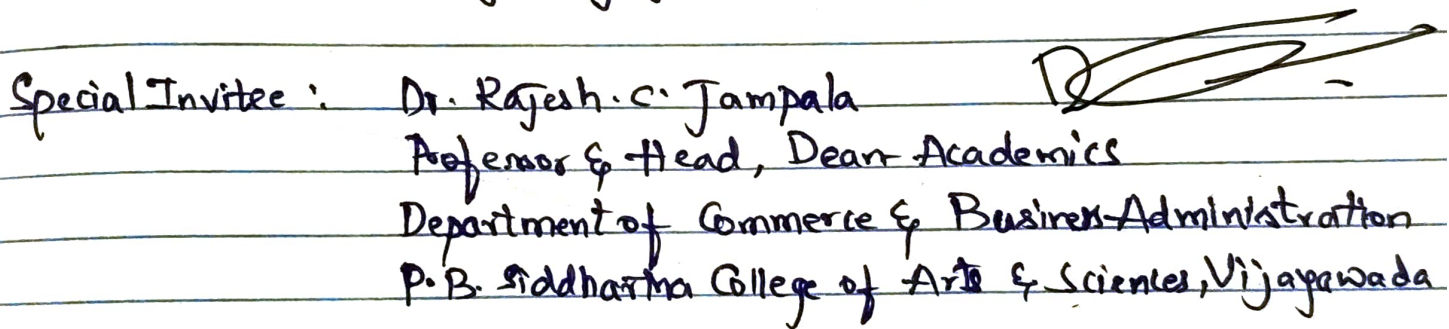 Special Invitee : Dr. Rajesh. C. Jampala
Professor & Head, Dean Academics
Department of Commerce & Business Administration
P. B. Siddhartha College of Arts & Sciences, Vijayawada